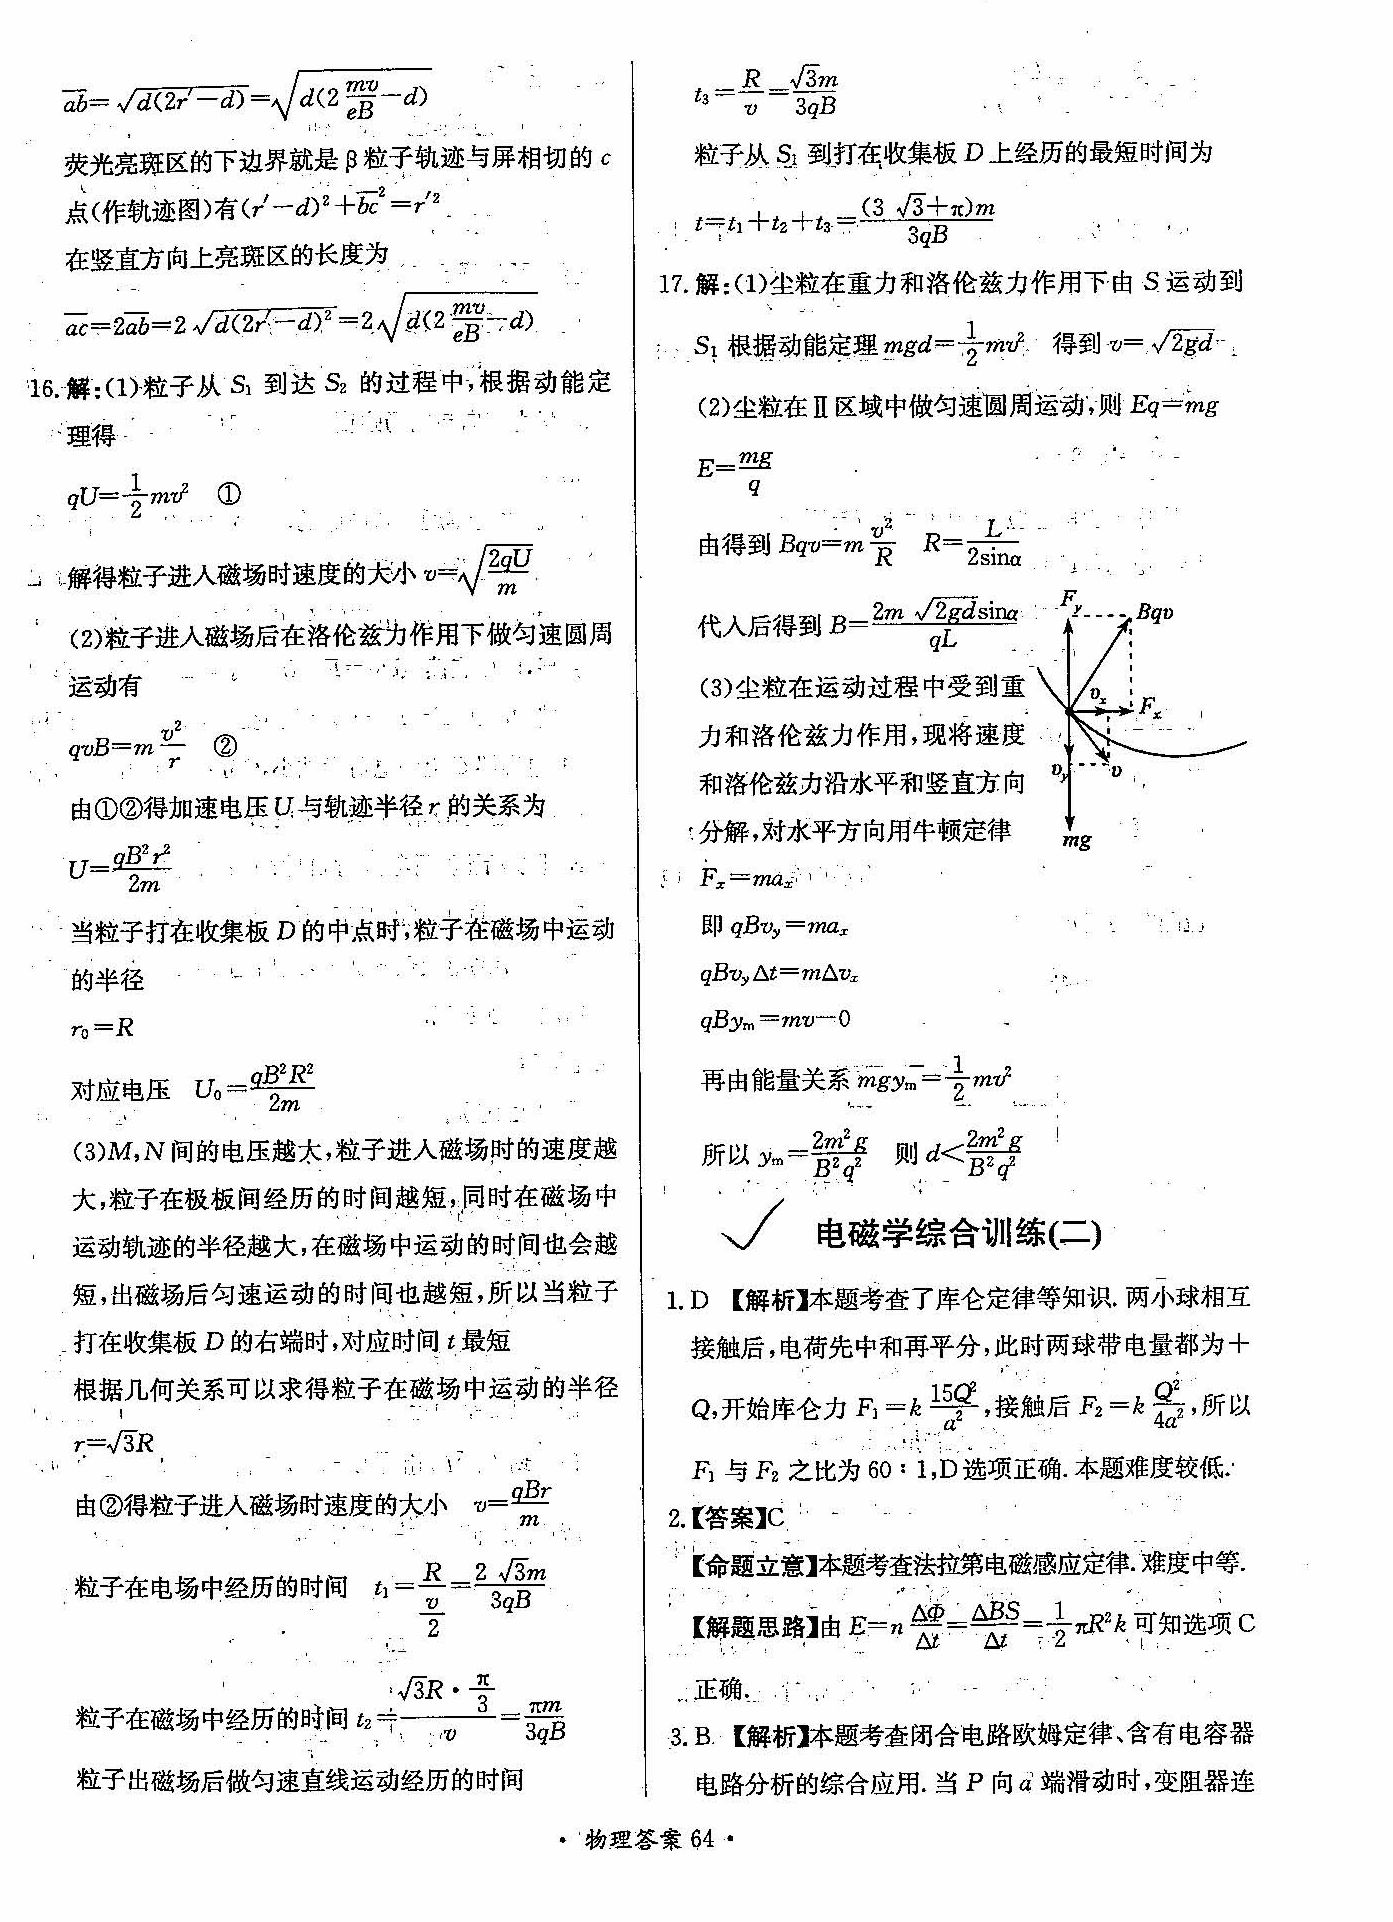 ab=√d(2r′−d)=√d(2 mv/eB −d)
荧光亮斑区的下边界就是β粒子轨迹与屏相切的c
点(作轨迹图)有(r′−d)²+bc²=r′²
在竖直方向上亮斑区的长度为
ac=2ab=2√d(2r′−d)²=2√d(2 mv/eB −d)
16.解:(1)粒子从S₁到达S₂的过程中,根据动能定
理得
qU=1/2 mv² ①
解得粒子进入磁场时速度的大小 v=√2qU/m
(2)粒子进入磁场后在洛伦兹力作用下做匀速圆周
运动有
qvB=m v²/r ②
由①②得加速电压U与轨迹半径r的关系为
U=qB²r²/2m
当粒子打在收集板D的中点时,粒子在磁场中运动
的半径
r₀=R
对应电压 U₀=qB²R²/2m
(3)M,N间的电压越大,粒子进入磁场时的速度越
大,粒子在极板间经历的时间越短,同时在磁场中
运动轨迹的半径越大,在磁场中运动的时间也会越
短,出磁场后匀速运动的时间也越短,所以当粒子
打在收集板D的右端时,对应时间t最短
根据几何关系可以求得粒子在磁场中运动的半径
r=√3R
由②得粒子进入磁场时速度的大小 v=qBr/m
粒子在电场中经历的时间 t₁=R/(v/2)=2√3m/3qB
粒子在磁场中经历的时间 t₂=(√3R·π/3)/v=πm/3qB
粒子出磁场后做匀速直线运动经历的时间
t₃=R/v=√3m/3qB
粒子从S₁到打在收集板D上经历的最短时间为
t=t₁+t₂+t₃=(3√3+π)m/3qB
17.解:(1)尘粒在重力和洛伦兹力作用下由S运动到
S₁根据动能定理mgd=1/2 mv² 得到v=√2gd
(2)尘粒在Ⅱ区域中做匀速圆周运动,则Eq=mg
E=mg/q
由得到Bqv=m v²/R R=L/2sinα
代入后得到B=2m√2gd sinα/qL
(3)尘粒在运动过程中受到重
力和洛伦兹力作用,现将速度
和洛伦兹力沿水平和竖直方向
分解,对水平方向用牛顿定律
Fy
Bqv
vx
Fx
vy
v
mg
Fx=max
即qBvy=max
qBvyΔt=mΔvx
qBym=mv−0
再由能量关系mgym=1/2 mv²
所以ym=2m²g/B²q² 则d<2m²g/B²q²
电磁学综合训练(二)
1.D 【解析】本题考查了库仑定律等知识.两小球相互
接触后,电荷先中和再平分,此时两球带电量都为+
Q,开始库仑力F₁=k 15Q²/a²,接触后F₂=k Q²/4a²,所以
F₁与F₂之比为60∶1,D选项正确.本题难度较低.
2.【答案】C
【命题立意】本题考查法拉第电磁感应定律.难度中等.
【解题思路】由E=n ΔΦ/Δt=ΔBS/Δt=1/2 πR²k可知选项C
正确.
3.B 【解析】本题考查闭合电路欧姆定律、含有电容器
电路分析的综合应用.当P向a端滑动时,变阻器连
·物理答案64·